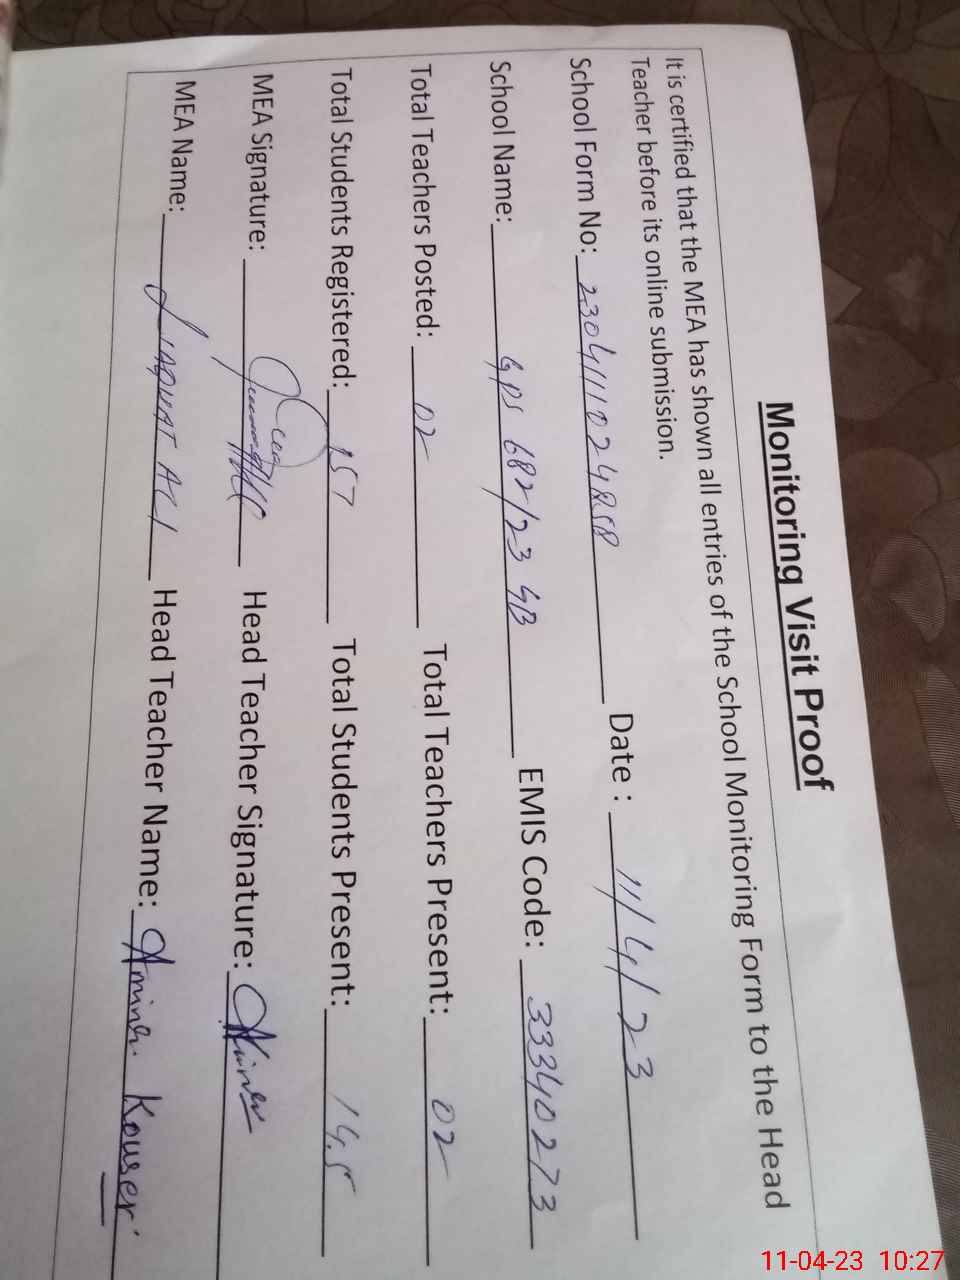 Monitoring Visit Proof
It is certified that the MEA has shown all entries of the School Monitoring Form to the Head
Teacher before its online submission.
School Form No: 2304111024858 Date : 11/4/23
School Name: GPS 682/23 GB EMIS Code: 33340273
Total Teachers Posted: 02 Total Teachers Present: 02
Total Students Registered: 157 Total Students Present: 145
MEA Signature: Head Teacher Signature:
MEA Name: LIAQUAT ALI Head Teacher Name: Amina Kouser
11-04-23 10:27